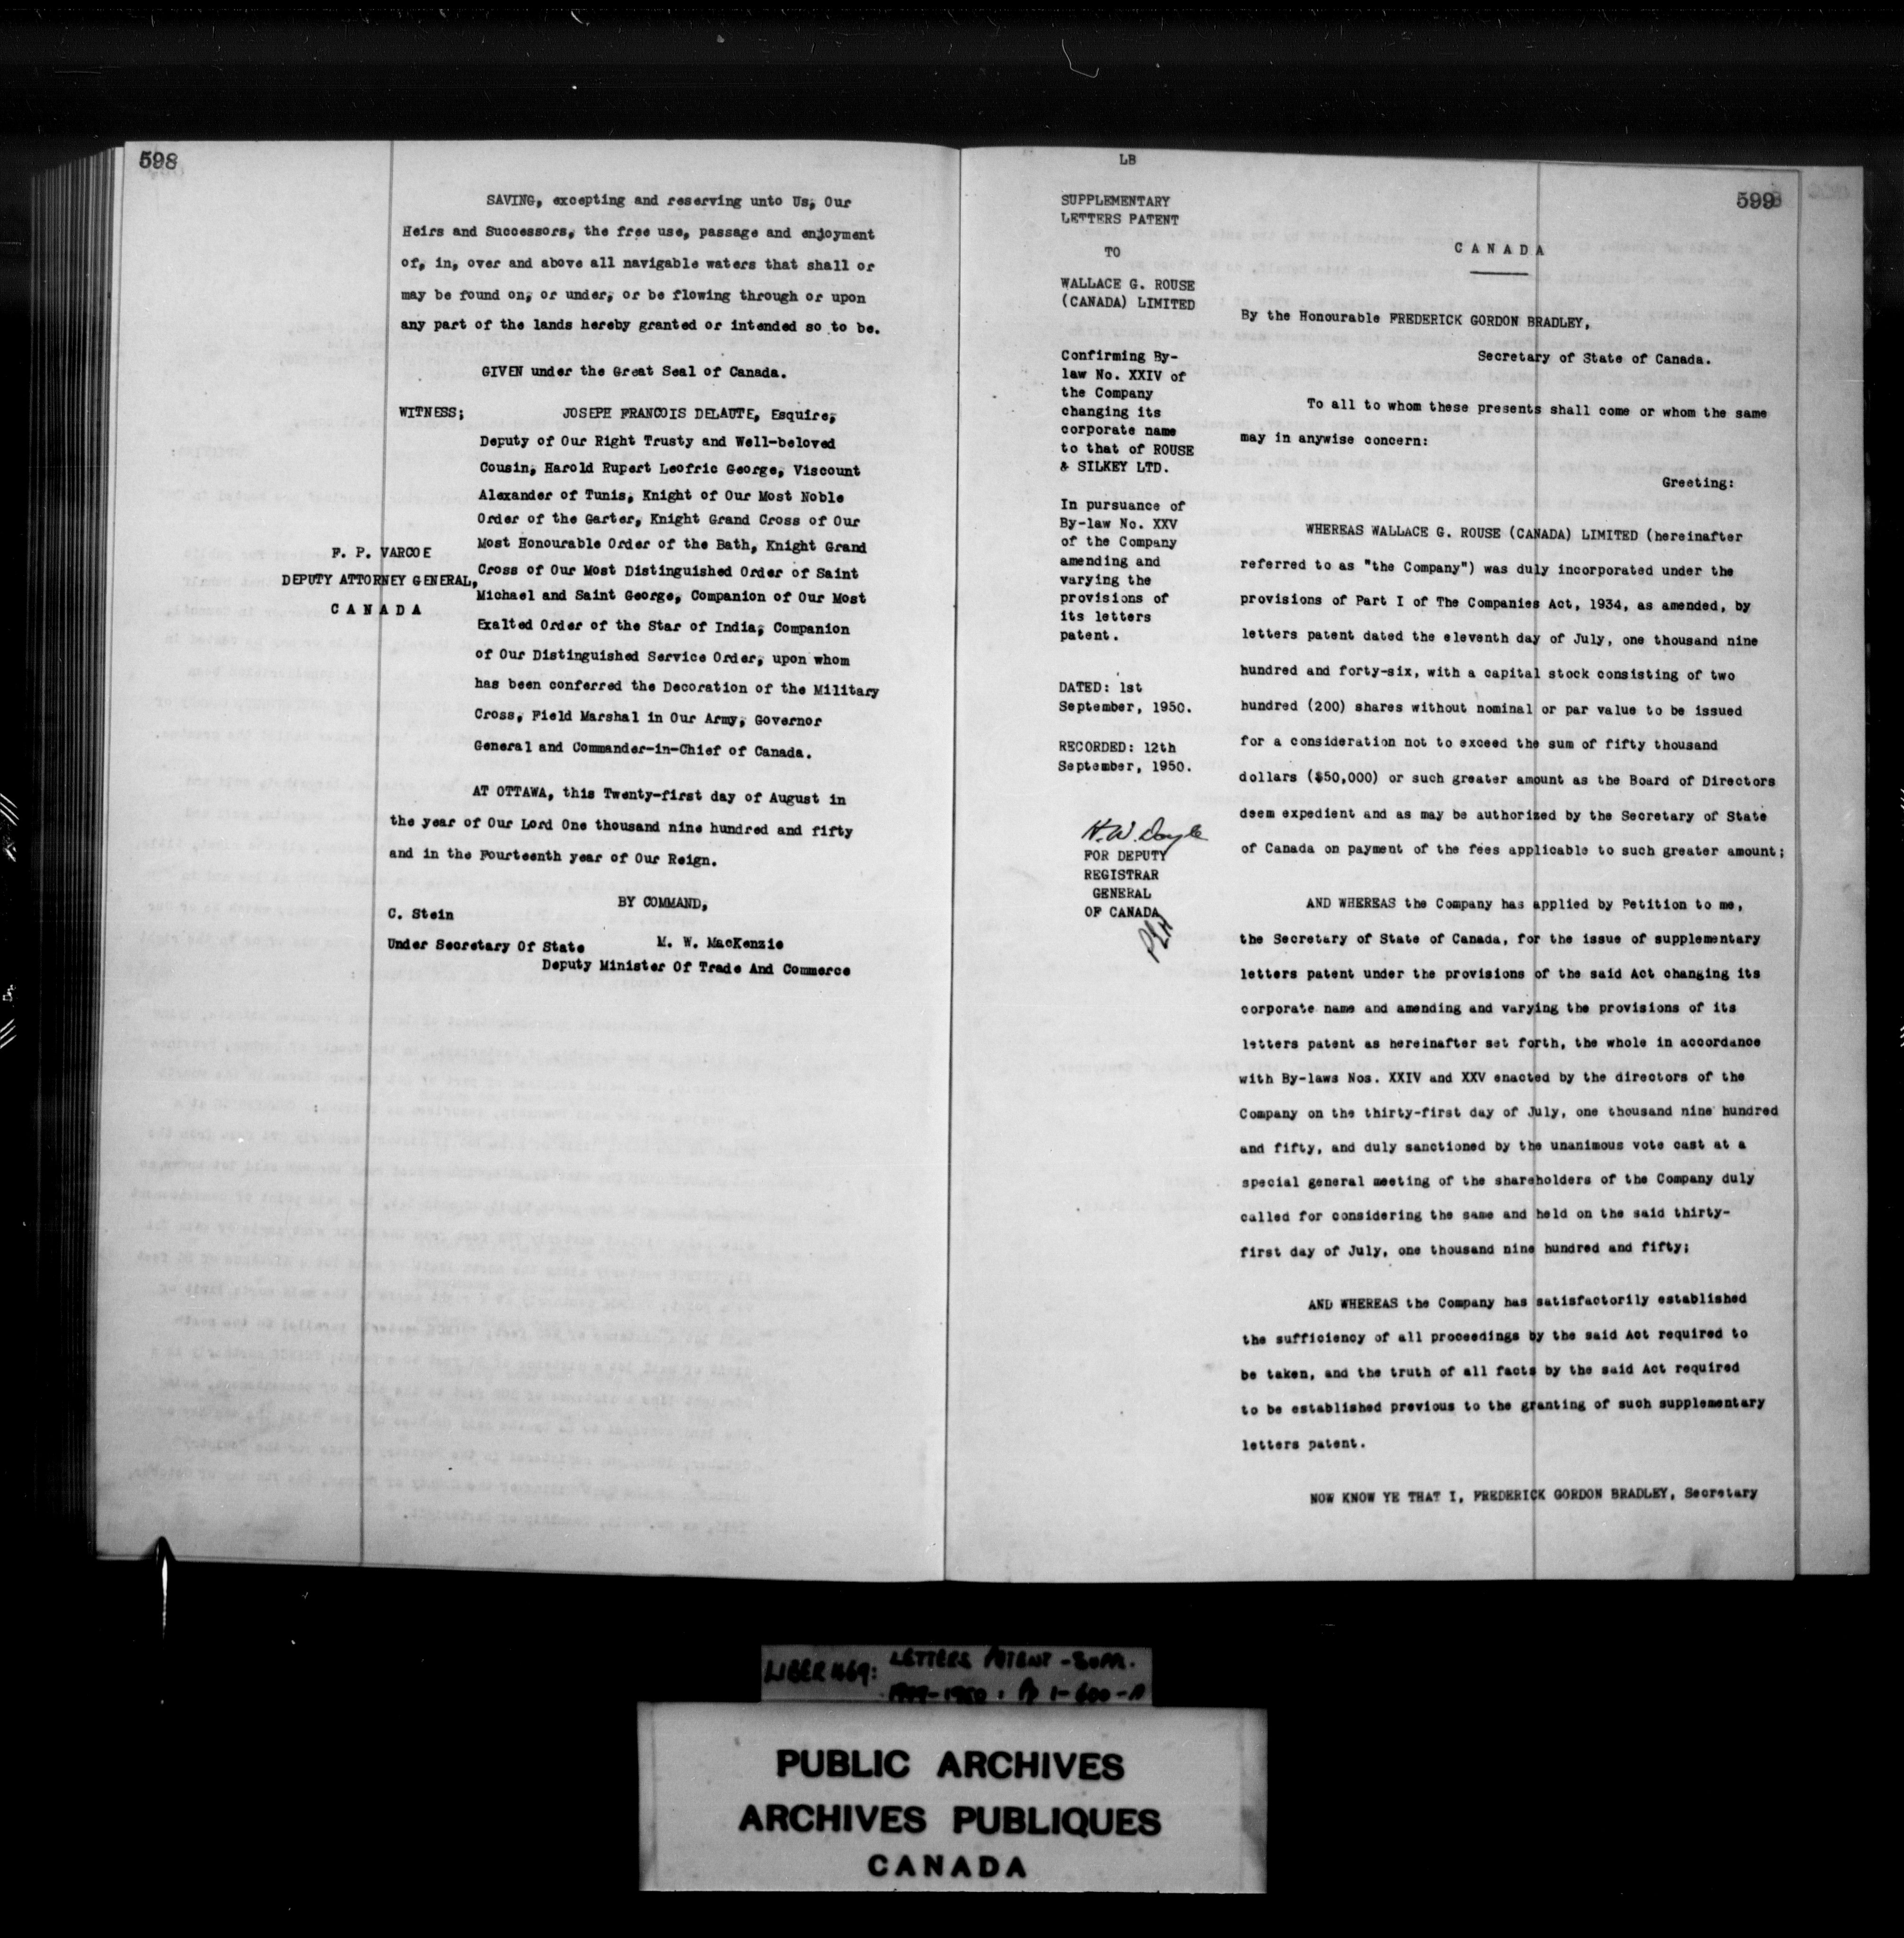 598
SAVING, excepting and reserving unto Us, Our
Heirs and Successors, the free use, passage and enjoyment
of, in, over and above all navigable waters that shall or
may be found on, or under, or be flowing through or upon
any part of the lands hereby granted or intended so to be.
GIVEN under the Great Seal of Canada.
WITNESS; JOSEPH FRANCOIS DELAUTE, Esquire,
Deputy of Our Right Trusty and Well-beloved
Cousin, Harold Rupert Leofric George, Viscount
Alexander of Tunis, Knight of Our Most Noble
Order of the Garter, Knight Grand Cross of Our
Most Honourable Order of the Bath, Knight Grand
Cross of Our Most Distinguished Order of Saint
Michael and Saint George, Companion of Our Most
Exalted Order of the Star of India, Companion
of Our Distinguished Service Order, upon whom
has been conferred the Decoration of the Military
Cross, Field Marshal in Our Army, Governor
General and Commander-in-Chief of Canada.
F. P. VARCOE
DEPUTY ATTORNEY GENERAL,
CANADA
AT OTTAWA, this Twenty-first day of August in
the year of Our Lord One thousand nine hundred and fifty
and in the Fourteenth year of Our Reign.
BY COMMAND,
C. Stein
Under Secretary Of State
M. W. MacKenzie
Deputy Minister Of Trade And Commerce
LB
599
SUPPLEMENTARY
LETTERS PATENT
TO
WALLACE G. ROUSE
(CANADA) LIMITED
Confirming By-
law No. XXIV of
the Company
changing its
corporate name
to that of ROUSE
& SILKEY LTD.
In pursuance of
By-law No. XXV
of the Company
amending and
varying the
provisions of
its letters
patent.
DATED: 1st
September, 1950.
RECORDED: 12th
September, 1950.
H. W. Doyle
FOR DEPUTY
REGISTRAR
GENERAL
OF CANADA
CANADA
By the Honourable FREDERICK GORDON BRADLEY,
Secretary of State of Canada.
To all to whom these presents shall come or whom the same
may in anywise concern:
Greeting:
WHEREAS WALLACE G. ROUSE (CANADA) LIMITED (hereinafter
referred to as "the Company") was duly incorporated under the
provisions of Part I of The Companies Act, 1934, as amended, by
letters patent dated the eleventh day of July, one thousand nine
hundred and forty-six, with a capital stock consisting of two
hundred (200) shares without nominal or par value to be issued
for a consideration not to exceed the sum of fifty thousand
dollars ($50,000) or such greater amount as the Board of Directors
deem expedient and as may be authorized by the Secretary of State
of Canada on payment of the fees applicable to such greater amount;
AND WHEREAS the Company has applied by Petition to me,
the Secretary of State of Canada, for the issue of supplementary
letters patent under the provisions of the said Act changing its
corporate name and amending and varying the provisions of its
letters patent as hereinafter set forth, the whole in accordance
with By-laws Nos. XXIV and XXV enacted by the directors of the
Company on the thirty-first day of July, one thousand nine hundred
and fifty, and duly sanctioned by the unanimous vote cast at a
special general meeting of the shareholders of the Company duly
called for considering the same and held on the said thirty-
first day of July, one thousand nine hundred and fifty;
AND WHEREAS the Company has satisfactorily established
the sufficiency of all proceedings by the said Act required to
be taken, and the truth of all facts by the said Act required
to be established previous to the granting of such supplementary
letters patent.
NOW KNOW YE THAT I, FREDERICK GORDON BRADLEY, Secretary
LIBER 469: LETTERS PATENT - SUPP.
1949-1950. Pp 1-600-A
PUBLIC ARCHIVES
ARCHIVES PUBLIQUES
CANADA